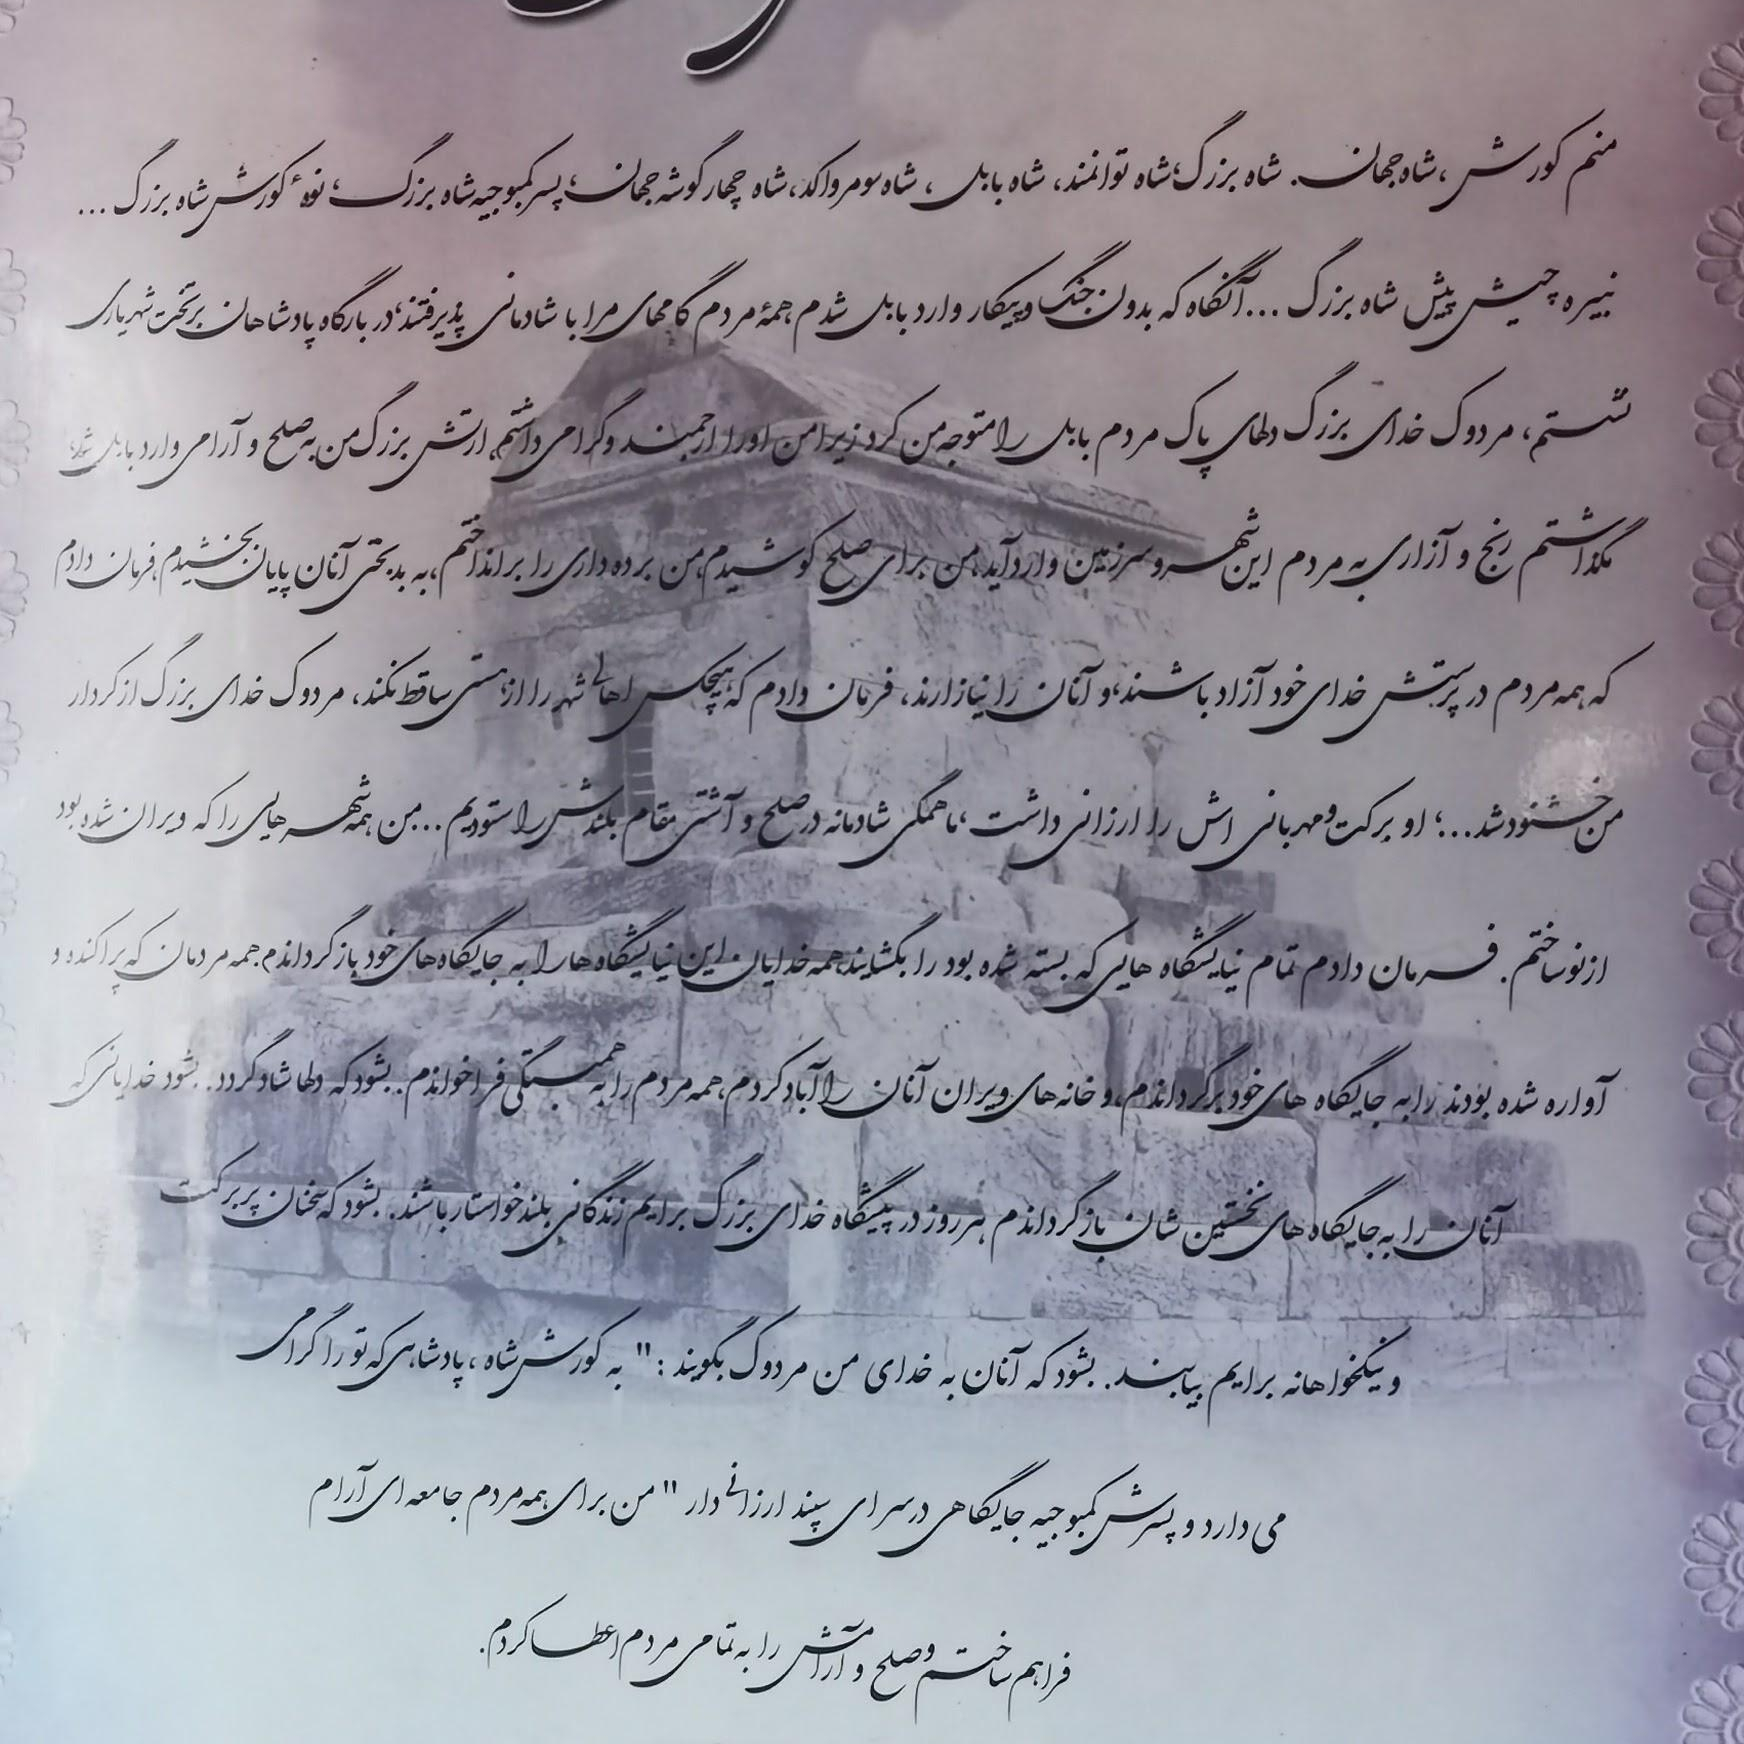 منم کورش، شاه جهان. شاه بزرگ، شاه توانمند، شاه بابل، شاه سومر و اکد، شاه چهار گوشه جهان، پسر کمبوجیه شاه بزرگ، نوهٔ کورش شاه بزرگ ...
نبیره چیش پیش شاه بزرگ ... آنگاه که بدون جنگ و پیکار وارد بابل شدم همهٔ مردم گامهای مرا با شادمانی پذیرفتند، در بارگاه پادشاهان بر تخت شهریاری
نشستم، مردوک خدای بزرگ دلهای پاک مردم بابل را متوجه من کرد زیرا من او را ارجمند و گرامی داشتم، ارتش بزرگ من به صلح و آرامی وارد بابل شد،
نگذاشتم رنج و آزاری به مردم این شهر و سرزمین وارد آید، من برای صلح کوشیدم، من برده داری را برانداختم، به بدبختی آنان پایان بخشیدم، فرمان دادم
که همه مردم در پرستش خدای خود آزاد باشند، و آنان را نیازارند، فرمان دادم که هیچکس اهالی شهر را از هستی ساقط نکند، مردوک خدای بزرگ از کردار
من خشنود شد...؛ او برکت و مهربانی اش را ارزانی داشت، ما همگی شادمانه در صلح و آشتی مقام بلندش را ستودیم ... من همه شهرهایی را که ویران شده بود
از نو ساختم. فرمان دادم تمام نیایشگاه هایی که بسته شده بود را بگشایند همه خدایان این نیایشگاه ها را به جایگاه های خود بازگرداندم، همه مردمان که پراکنده و
آواره شده بودند را به جایگاه های خود برگرداندم، و خانه های ویران آنان را آباد کردم، همه مردم را به همبستگی فراخواندم. بشود که دلها شاد گردد. بشود خدایانی که
آنان را به جایگاه های نخستین شان بازگرداندم هر روز در پیشگاه خدای بزرگ برایم زندگانی بلند خواستار باشند. بشود که سخنان پر برکت
و نیکخواهانه برایم بیابند. بشود که آنان به خدای من مردوک بگویند: " به کورش شاه، پادشاهی که تو را گرامی
می دارد و پسرش کمبوجیه جایگاهی در سرای سپند ارزانی دار " من برای همه مردم جامعه ای آرام
فراهم ساختم و صلح و آرامش را به تمامی مردم اعطا کردم.